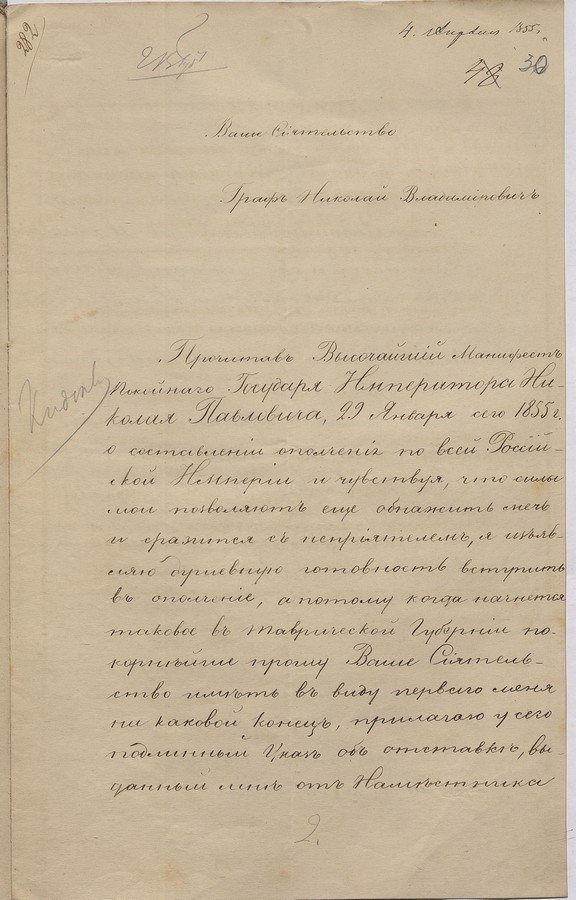 282
4. Апреля 1855 г.
48 30
Ваше Сіятельство
Графъ Николай Владиміровичъ
Прочитавъ Высочайшій Манифестъ
покойнаго Государя Императора Ни-
колая Павловича, 29 Января сего 1855 г.
о составленіи ополченія по всей Россій-
ской Имперіи и чувствуя, что силы
мои позволяютъ еще обнажить мечь
и сразится съ непріятелемъ, я изъяв-
ляю душевную готовность вступить
въ ополченіе, а потому когда начнется
таковое въ Таврической Губерніи по-
корнѣйши прошу Ваше Сіятель-
ство имѣть въ виду перваго меня
на каковой конецъ, прилагаю у сего
подлинный Указъ объ отставкѣ, вы
данный мнѣ отъ Намѣстника
2.